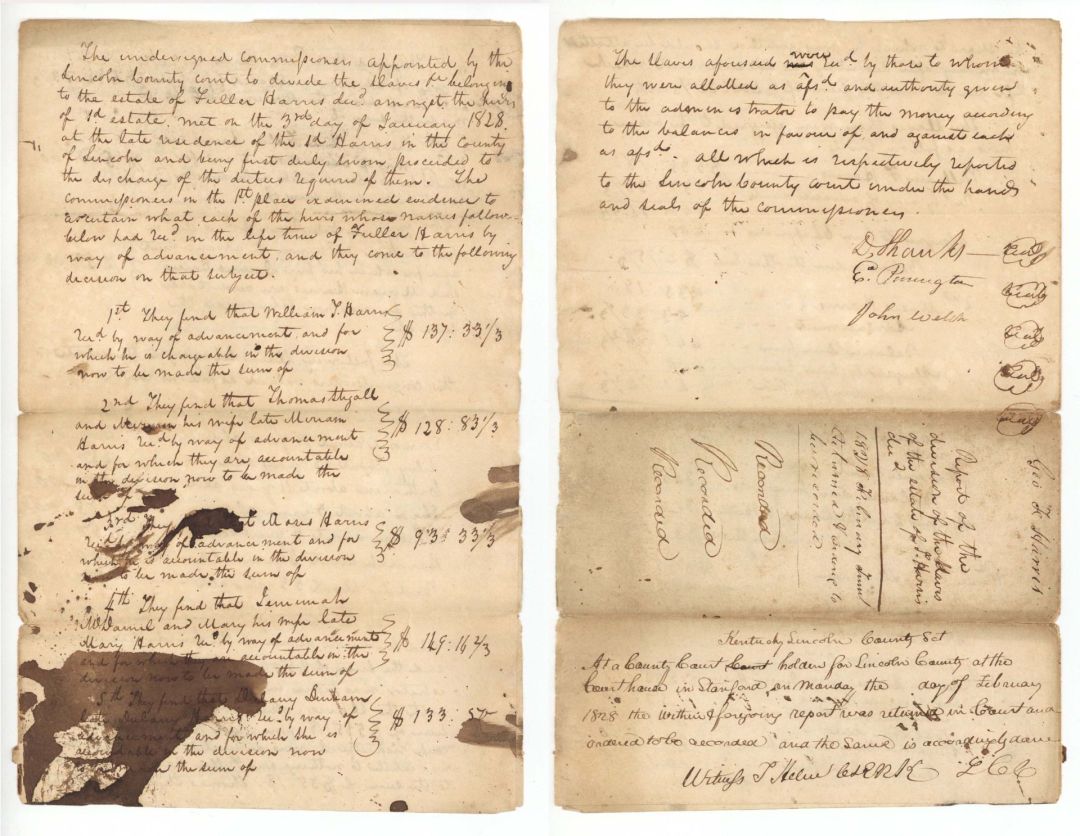 The undersigned commissioners appointed by the
Lincoln County court to divide the slaves &c belonging
to the estate of Fuller Harris decd. amongst the heirs
of sd estate, met on the 3rd day of January 1828
at the late residence of the sd Harris in the County
of Lincoln and being first duly sworn proceeded to
the discharge of the duties required of them. The
commissioners in the 1st place examined evidence to
ascertain what each of the heirs whose names follow
below had Recd in the life time of Fuller Harris by
way of advancement, and they come to the following
decision on that subject.
1st They find that William T. Harris
Recd by way of advancement, and for
which he is chargeable in the division
now to be made the sum of
$ 137: 33 1/3
2nd They find that Thomas
and his wife late Miriam
Harris Recd by way of advancement
and for which they are accountable
in the division now to be made the
sum of
$ 128: 83 1/3
3rd They Harris
Recd by way of advancement and for
which he is accountable in the division
to be made, the sum of
$ 33 1/3
4th They find that
McDaniel and Mary his wife late
Mary Harris Recd by way of advancement
and for which they are accountable in the
division now to be made the sum of
$ 149: 16 2/3
5th They find that Durham
late Recd by way of
advancement and for which she is
accountable in the division now
the sum of
$ 133
The slaves aforesaid were Recd by those to whom
they were allotted as afsd and authority given
to the administrator to pay the money according
to the balances in favour of, and against each
as afsd. all which is respectively reported
to the Lincoln County court under the hands
and seals of the commissioners.
D. Shanks — Seal
Seal
John Welsh
Seal
Seal
Seal
Geo. F. Harris
Report of the
division of the slaves
of the estate of F. Harris
decd
1828 February
Returned & ordered to
be recorded
Recorded
Recorded
Recorded
Kentucky Lincoln County Sct
At a County Court Court holden for Lincoln County at the
Court house in Stanford on Monday the day of February
1828 the within & foregoing report was returned in Court and
ordered to be recorded and the same is accordingly done
Witness T Helm ClERK L C C